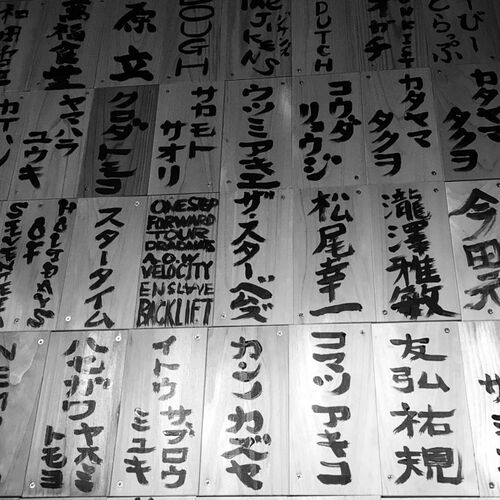 とらっぷ
オガチ
DUTCH
原立
萬福食堂
カタヤマ
タクヲ
カタヤマ
タクヲ
コウダ
リョウジ
ウツミアキエ
サカモト
サオリ
クロダトモコ
ヤマハラ
ユウキ
今田元
瀧澤雅敏
松尾幸一
ザ・スターベムズ
ONE STEP
FORWARD
TOUR
DRAGMATS
A.O.W
VELOCITY
ENSLAVE
BACKLIFT
スタータイム
HOLIDAYS
OF
SEVENTEEN
友弘祐規
コマツアキコ
カンカベヤ
イトウサブロウ
ミユキ
トモヨ